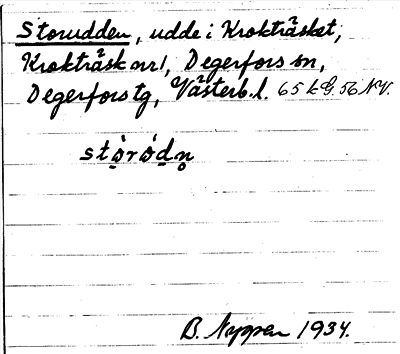 Storudden, udde i Krokträsket,
Krokträsk nr 1, Degerfors sn,
Degerfors tg, Västerb. l. 65 k G. 56 NV.
stò̱ró̱d̲n̥
B. Nyppen 1934.